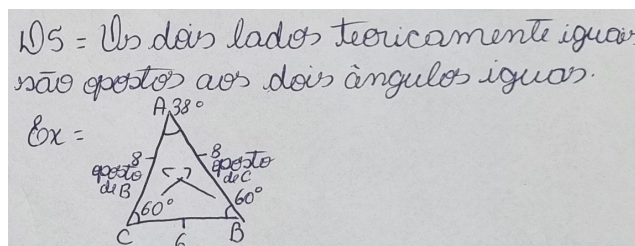 DS = Os dois lados teoricamente iguais
são opostos aos dois ângulos iguas.
Ex =
A 38°
8
oposto
de B
8
oposto
de C
60°
60°
C
6
B